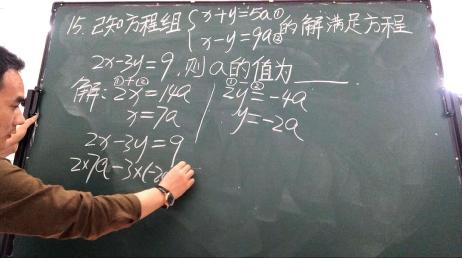 15. 已知方程组{x+y=5a① x-y=9a②的解满足方程
2x-3y=9,则a的值为____
解:①+② 2x=14a
x=7a
①-② 2y=-4a
y=-2a
2x-3y=9
2×7a-3×(-2